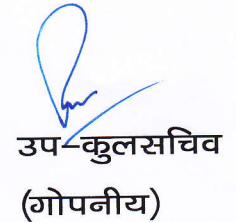 उप-कुलसचिव
(गोपनीय)